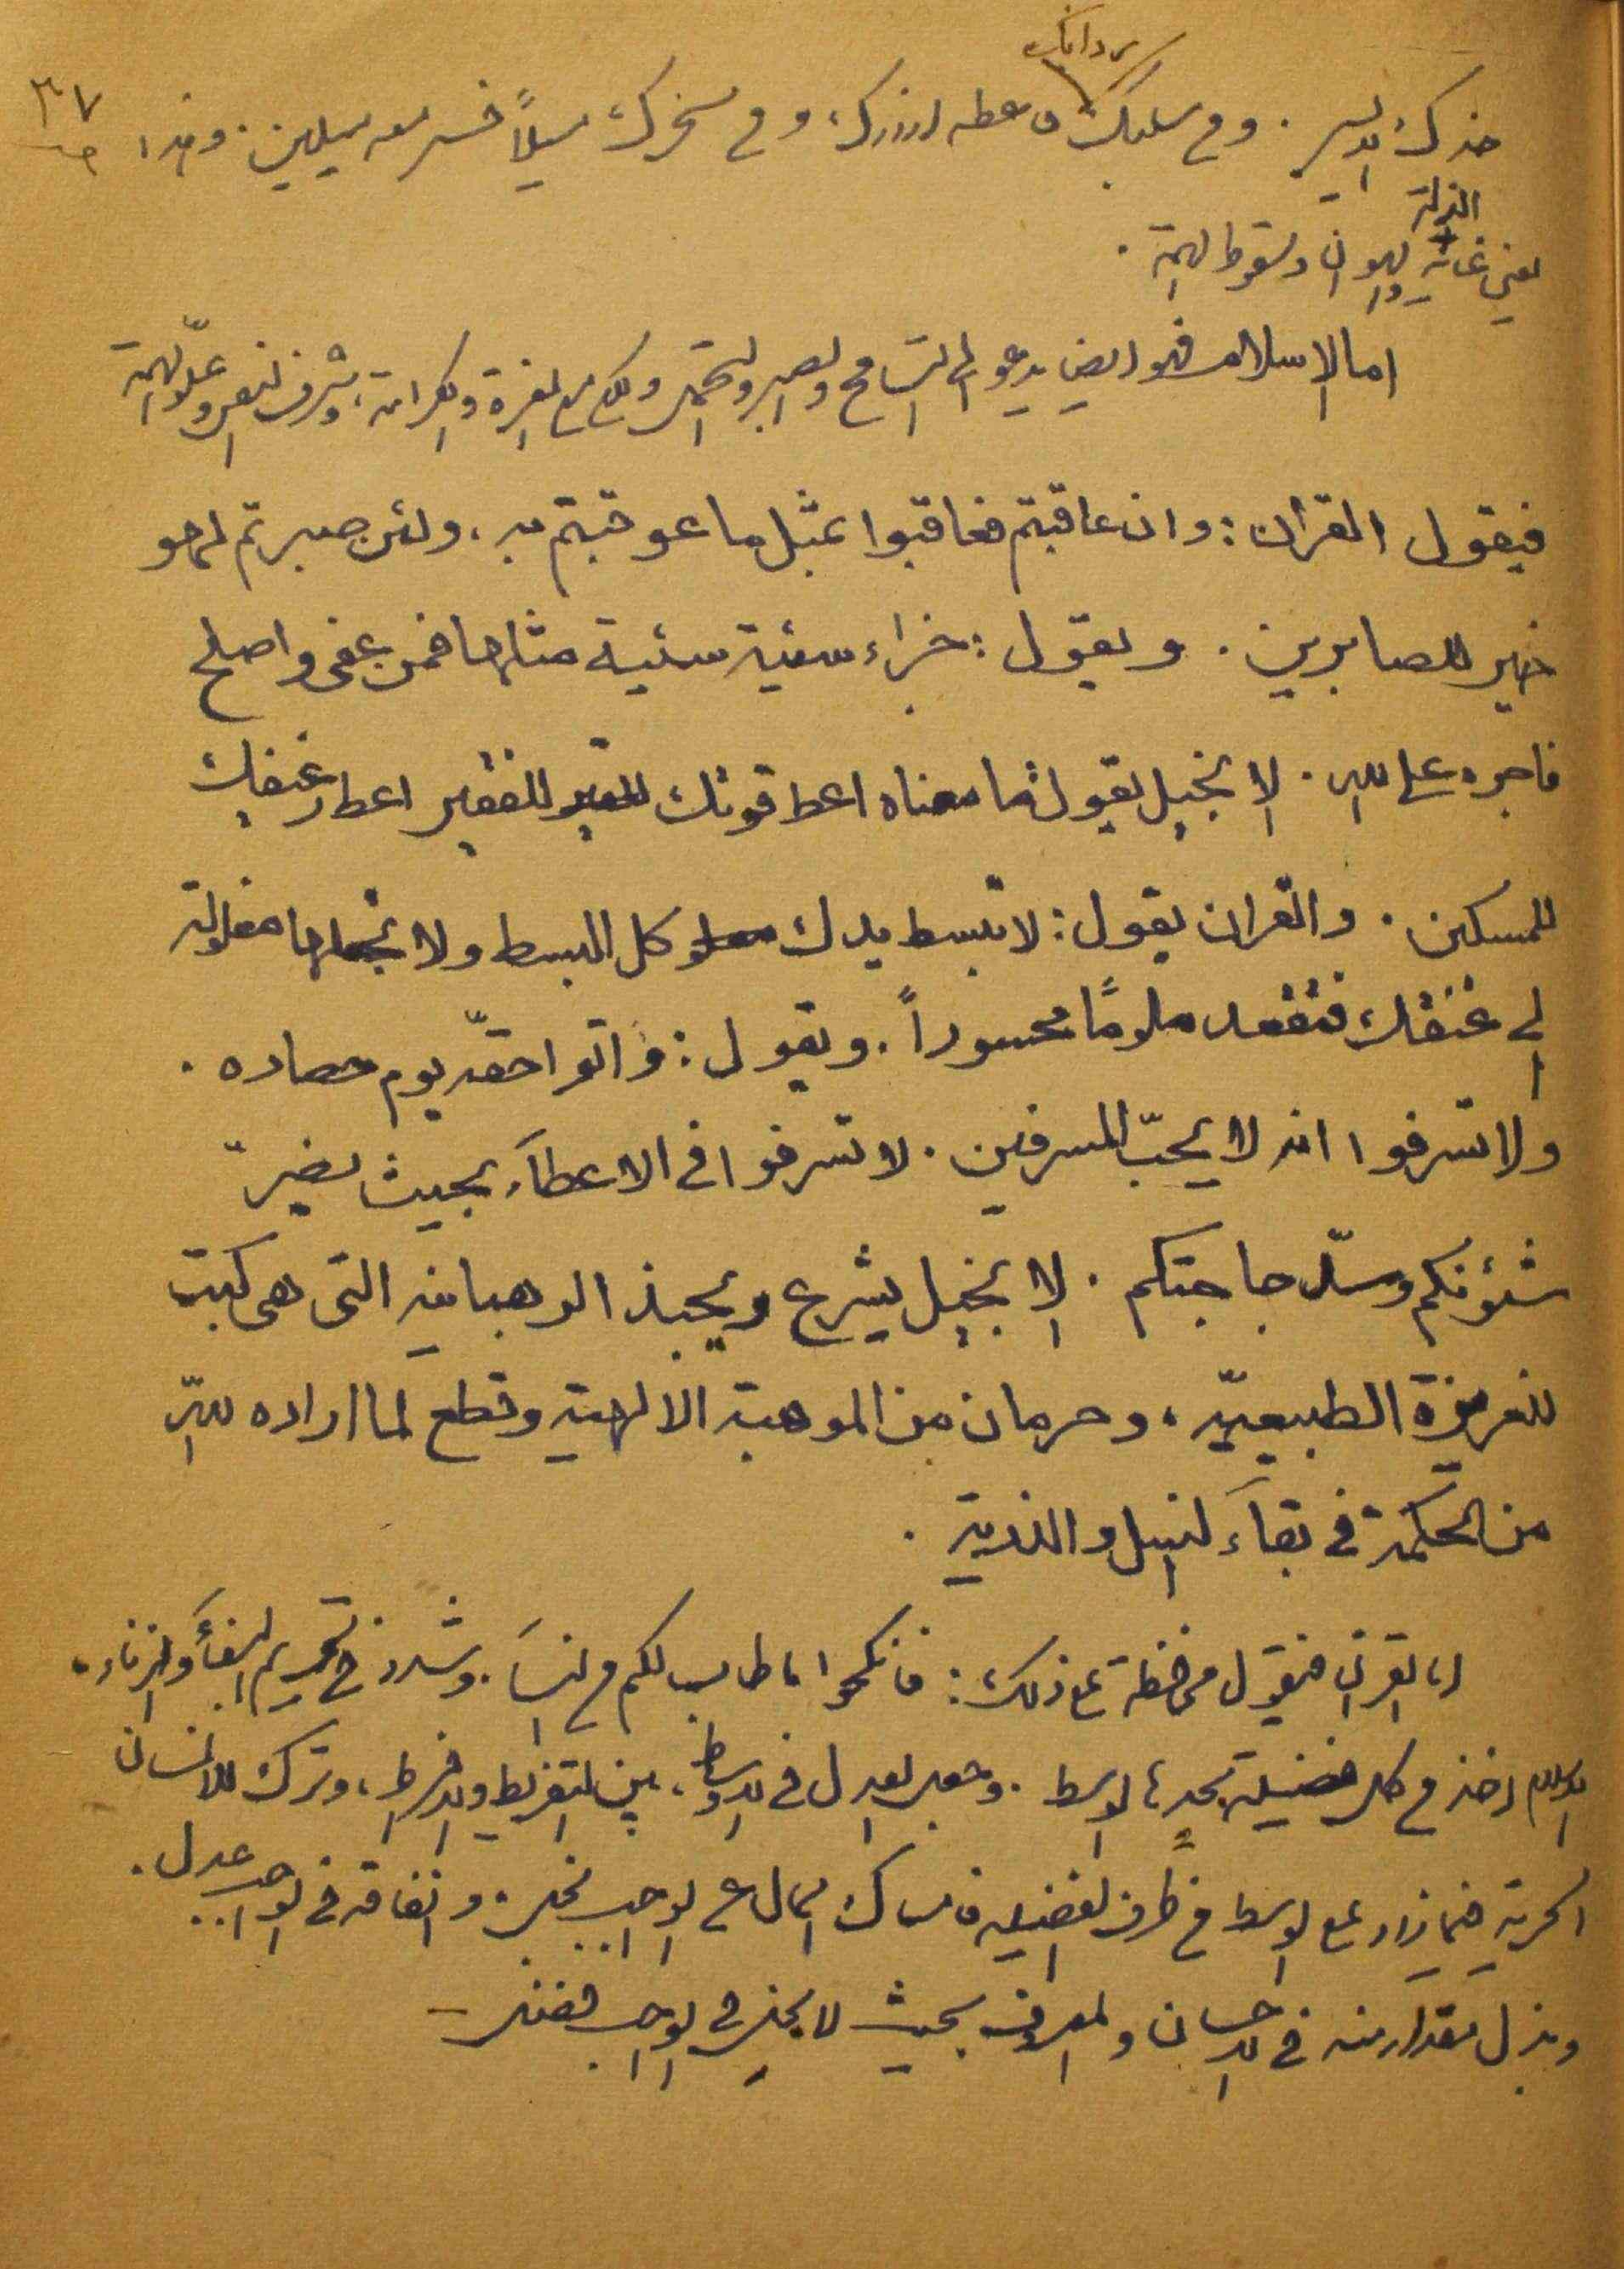 ردائك
خدك الايسر . ومن سلبك فاعطه ازارك، ومن سخرك ميلاً فسر معه ميلين . وهذا ٣٧
الذلة
يعني غاية والهوان وسقوط الهمة .
اما الاسلام فهو ايضا يدعو الى التسامح والصبر والتحمل ولكن مع العزة والكرامة، وشرف النفس وعلوّ الهمة
فيقول القران : وان عاقبتم فعاقبوا بمثل ما عوقبتم به ، ولئن صبرتم لهو
خير للصابرين . ويقول : جزاء سئية سئية مثلها فمن عفى واصلح
فاجره على الله . الانجيل يقول ما معناه اعط قوتك للفقير اعط رغيفك
للمسكين . والقران يقول : لا تبسط يدك كل البسط ولا تجعلها مغلولة
الى عنقك فتقعد ملومًا محسوراً . ويقول : واتوا حقّه يوم حصاده .
ولا تسرفوا انه لا يحبّ المسرفين . لا تسرفوا في الاعطآء بحيث يضرّ
شئونكم وسدّ حاجتكم . الانجيل يشرع ويحبذ الرهبانيه التى هى كبت
للغريزة الطبيعيّه ، وحرمان من الموهبة الالهية وقطع لما اراده الله
من الحكمة في بقآء النسل والذرية .
اما القران فيقول محافظة على ذلك : فانكحوا ما طاب لكم من النسآء . وشدد في تحريم البغآء والزناء،
الاسلام اخذ من كل فضيلة بحدها الوسط . وجعل العدل في الاوساط، بين التفريط والافراط ، وترك للانسان
الحرية فيما زاد على الوسط في طرف الفضيله فامساك المال عن الواجب بخل . وانفاقه في الواجب عدل .
وبذل مقدار منه في الاحسان والمعروف بحيث لا يخل في الواجب فضل –